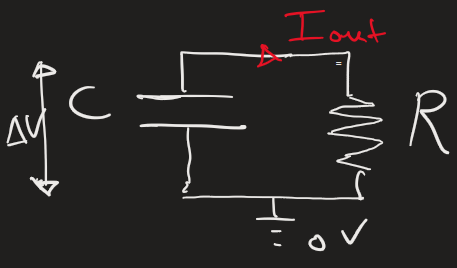 I out
C
ΔV
R
0V